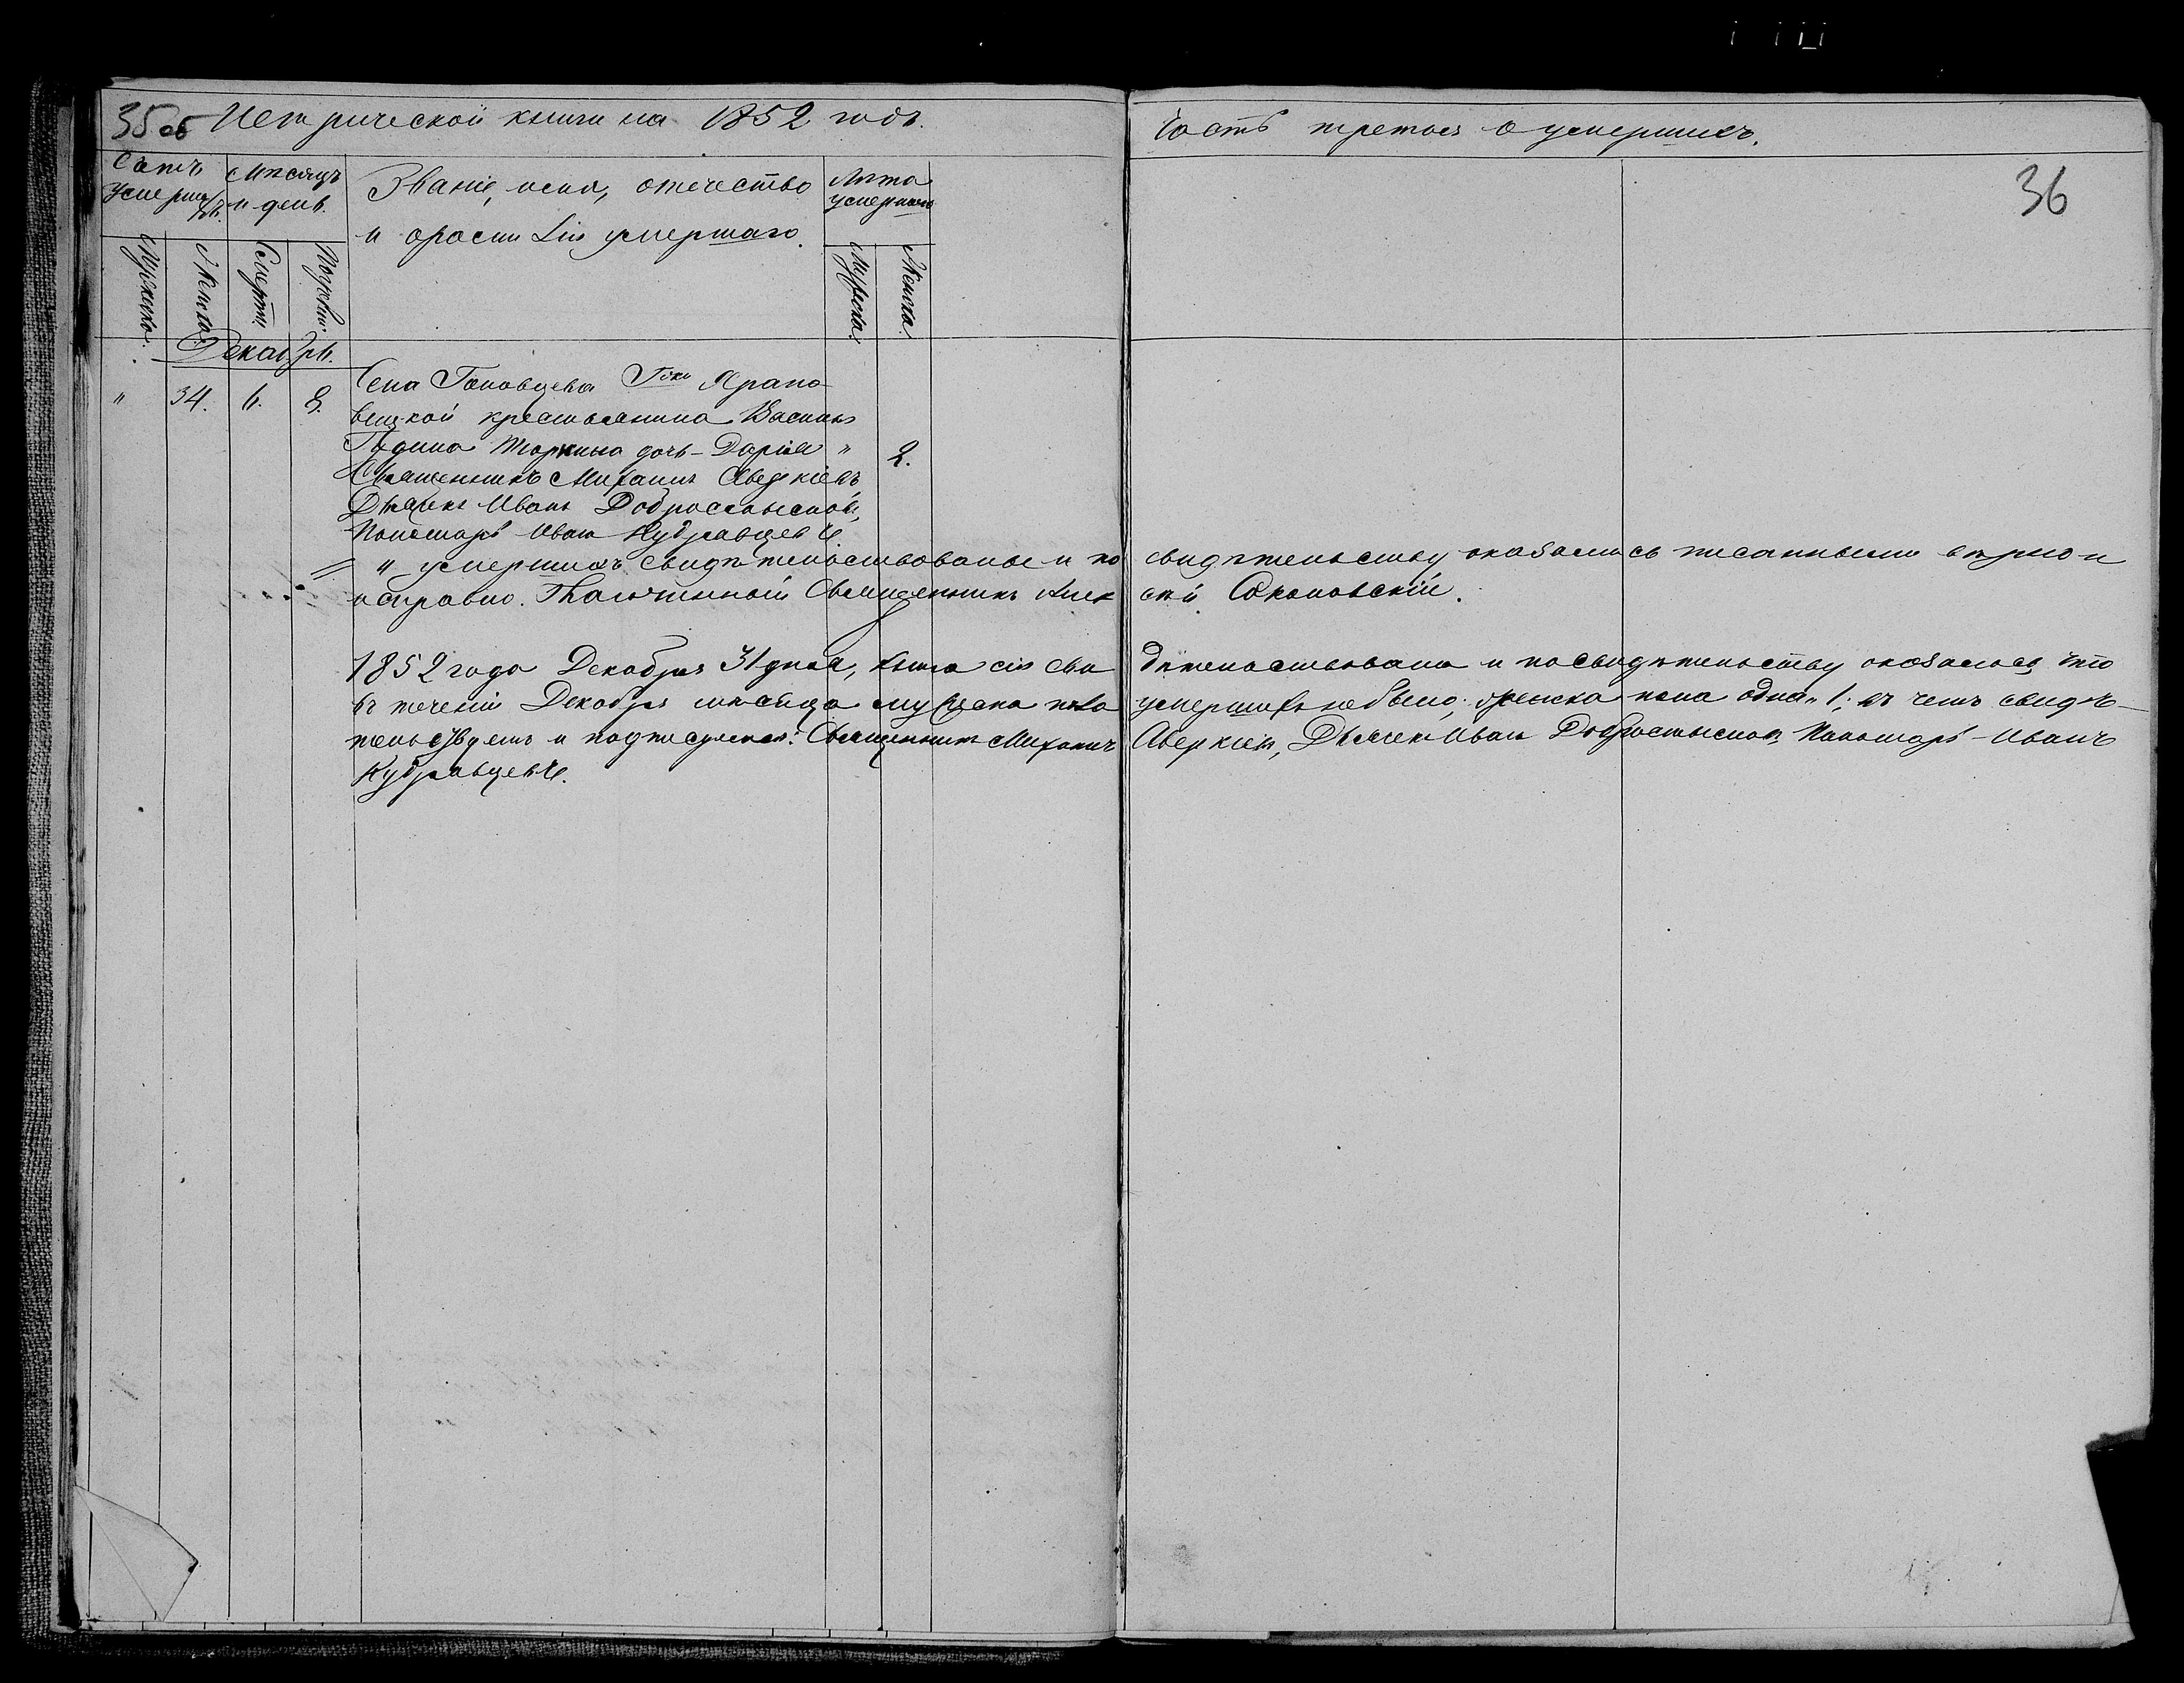 35 об Метрической книги на 1852 годъ.
Часть третья о умершихъ.
36
Счетъ умершихъ.
Мѣсяцъ и день.
Званіе, имя, отечество
и фамилія умершаго.
Лѣта умершаго
Мужеска.
Женска.
Смерти.
Погребен.
Мужеска.
Женска.
Декабрь.
" 34. 6. 8. Села Головцева Гжи Ярано-
вецкой крестьянина Василія
дочь - Дарія " 2.
Священникъ Михаилъ Аверкіевъ
Дьячекъ Иванъ Добросмысловъ,
Пономарь Иванъ Кудрявцевъ.
" умершихъ свидѣтельствованы и по свидѣтельству оказались писанными вѣрно и
исправно. Благочинный Священникъ Алексѣй Соколовскій.
1852 года Декабря 31 дня, книга сія свидѣтельствована и по свидѣтельству оказалось что
въ теченіи Декабря мѣсяца мужеска пола умершихъ не было; женска пола одна "1; въ чемъ свидѣ-
тельствуемъ и подписуемся: Священникъ Михаилъ Аверкіевъ, Дьячекъ Иванъ Добросмысловъ, Пономарь - Иванъ
Кудрявцевъ.